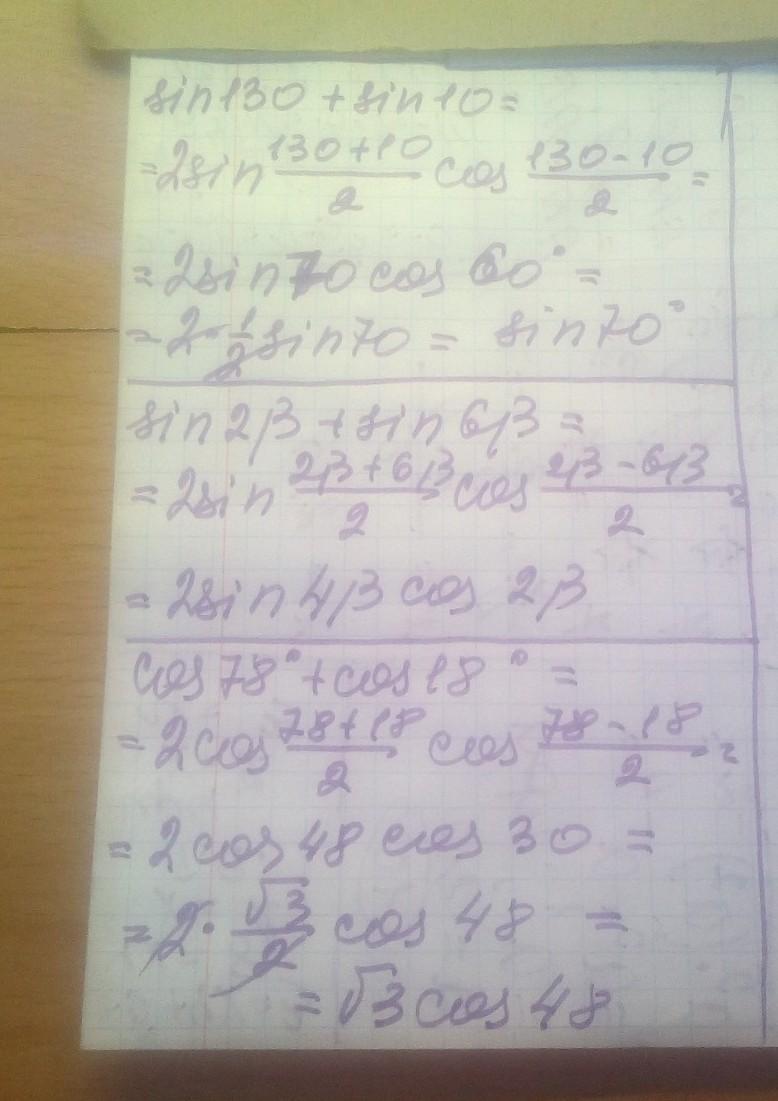 sin130 + sin10 =
= 2sin (130+10)/2 cos (130-10)/2 =
= 2sin70 cos 60° =
= 2·1/2 sin70 = sin70°
sin2β + sin6β =
= 2sin (2β+6β)/2 cos (2β-6β)/2 =
= 2sin4β cos 2β
cos78° + cos18° =
= 2cos (78+18)/2 cos (78-18)/2 =
= 2cos48 cos 30 =
= 2·√3/2 cos 48 =
= √3 cos 48